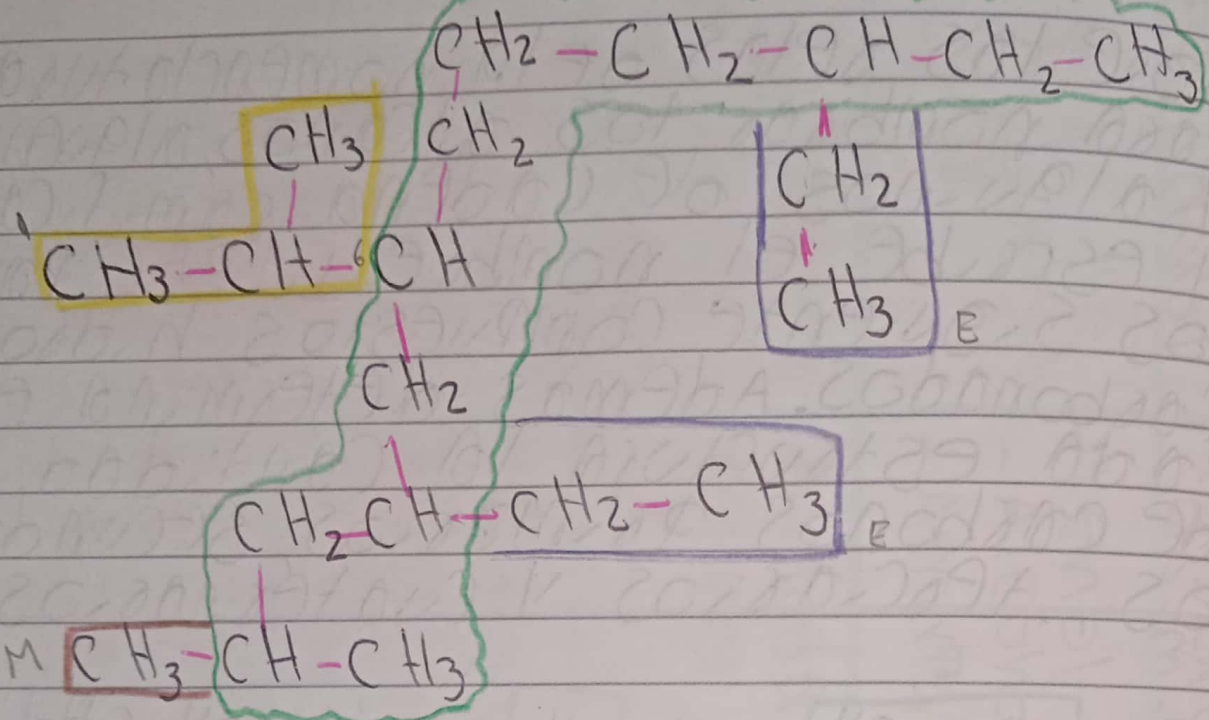 CH2-CH2-CH-CH2-CH3
CH3 CH2 CH2
1CH3-CH-6CH CH3 E
CH2
CH2-CH-CH2-CH3 E
M CH3-CH-CH3